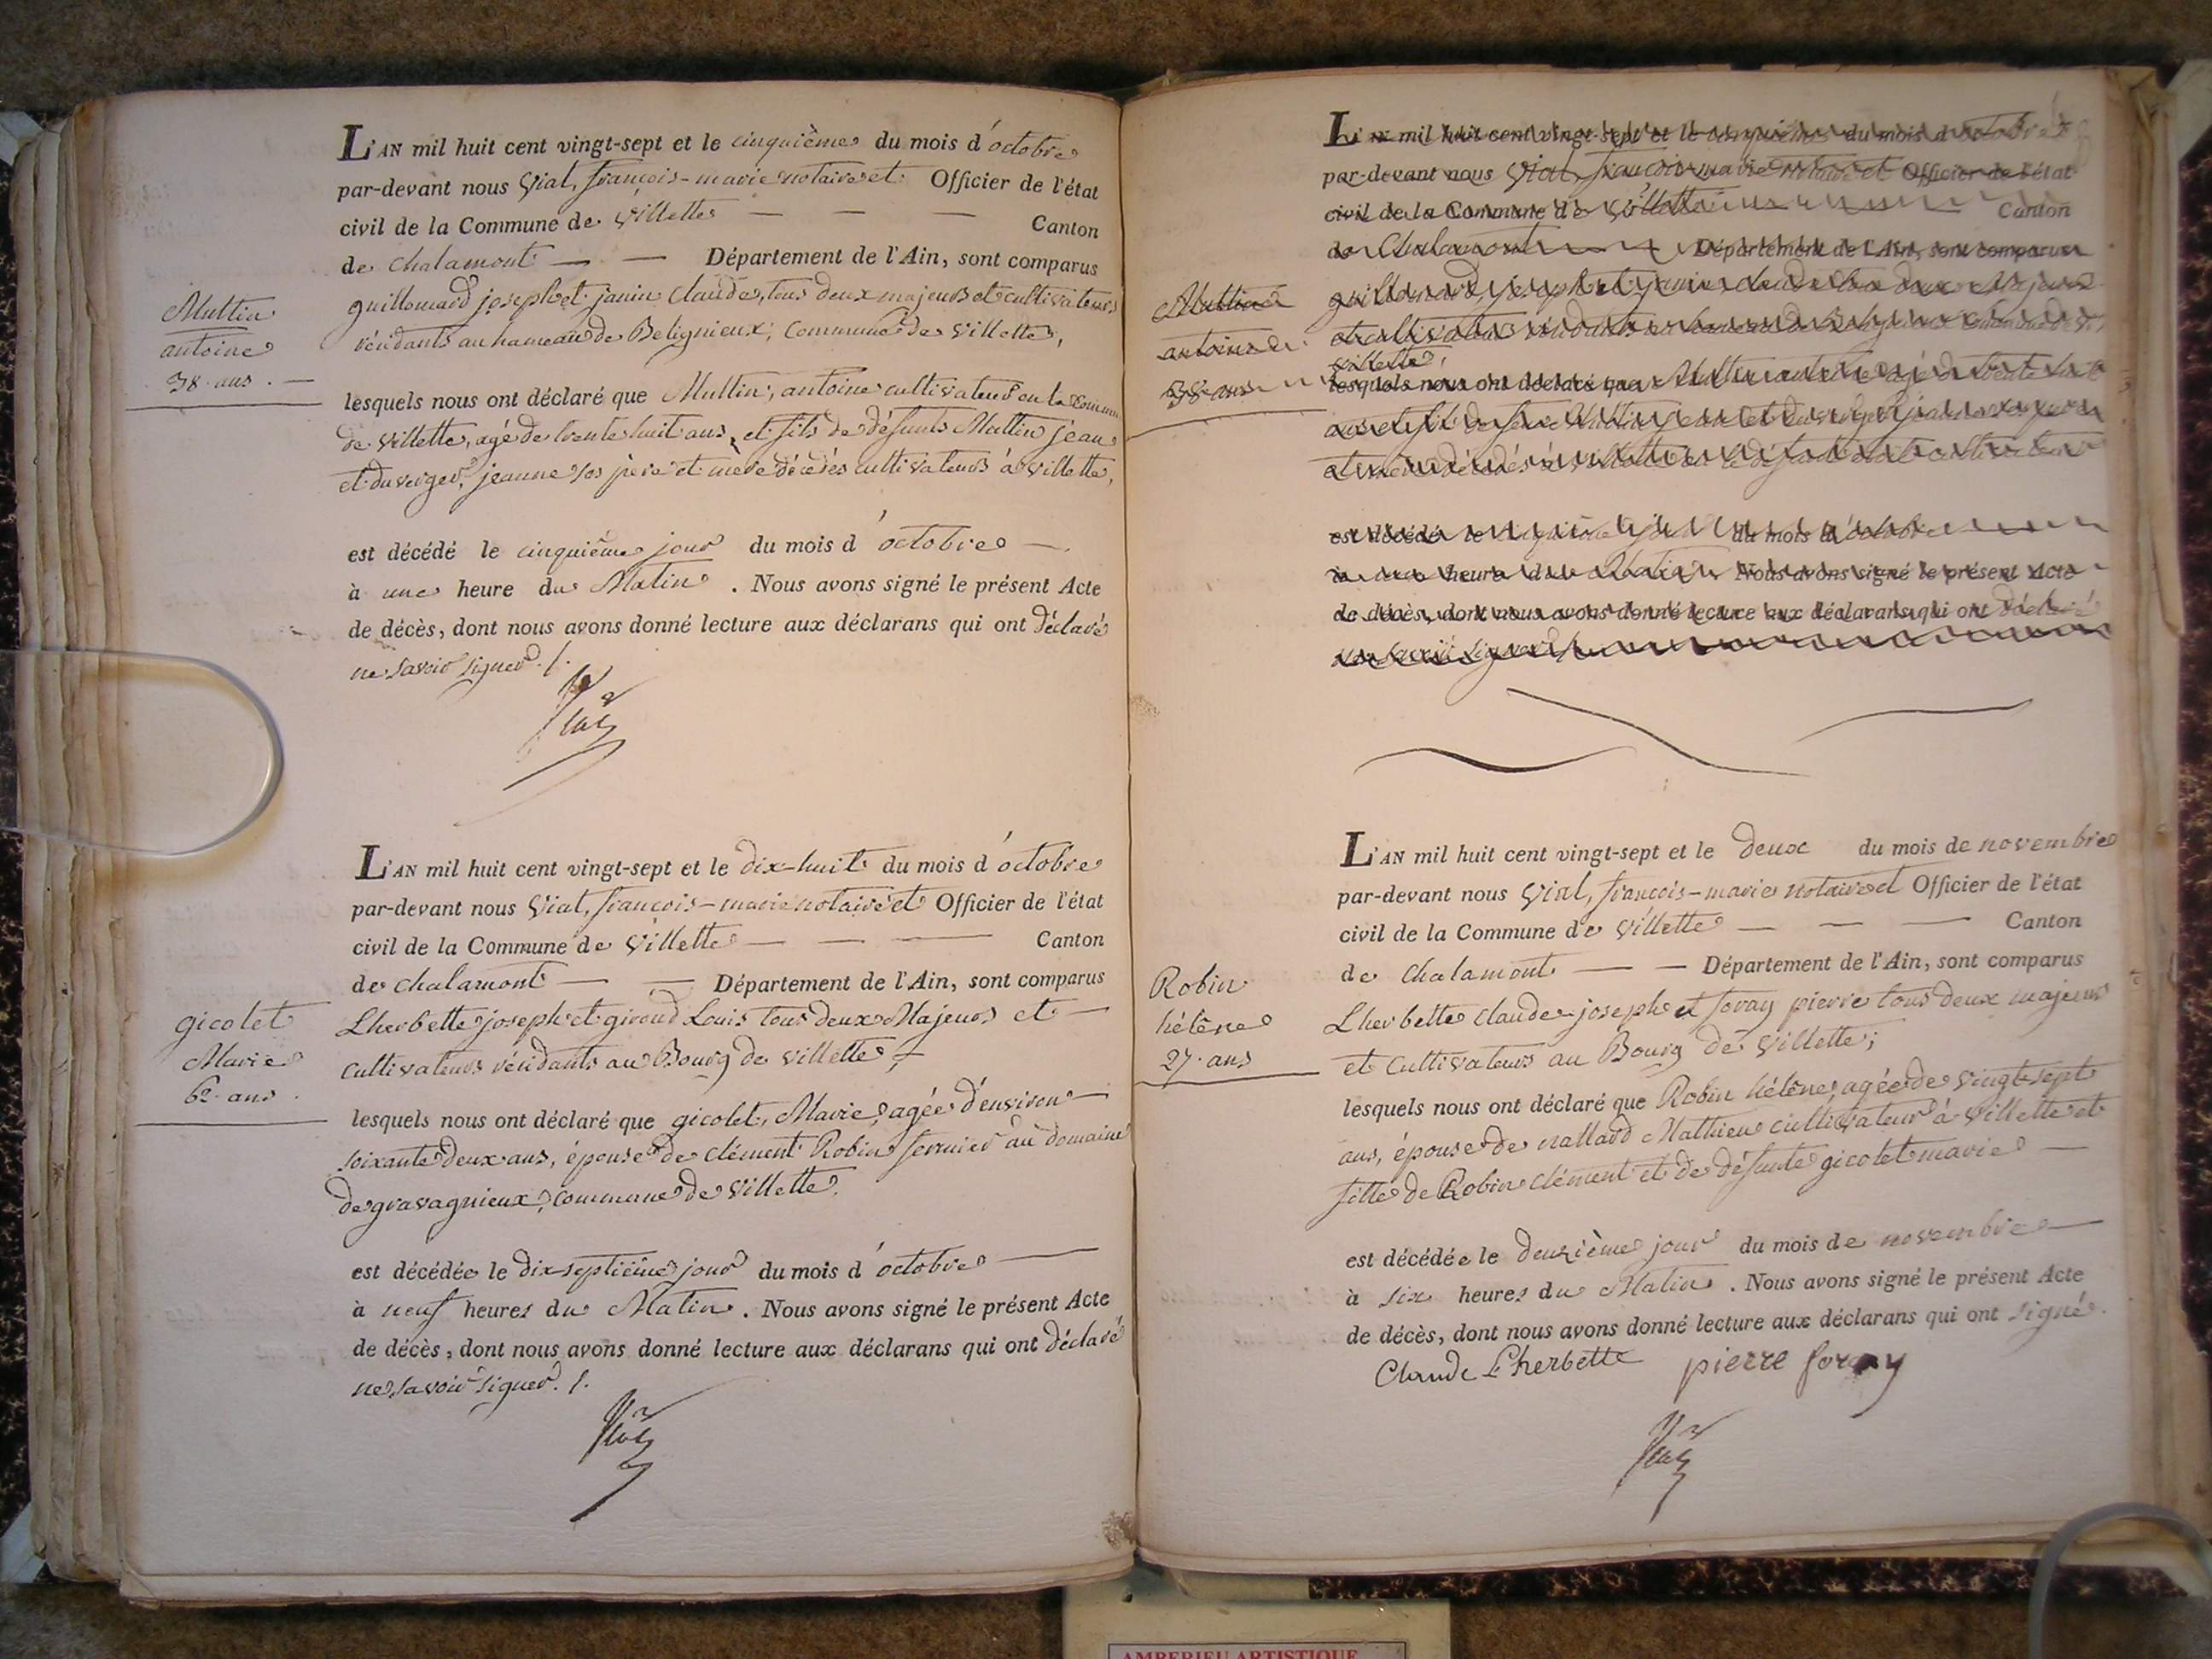 L'AN mil huit cent vingt-sept et le cinquième du mois d'octobre
par-devant nous Vial, françois-marie notaire et Officier de l'état
civil de la Commune de Villette — — — Canton
de chalamont — — Département de l'Ain, sont comparus
guillomard joseph et janin Claude, tous deux majeurs et cultivateurs
résidants au hameau de Belignieux, Commune de villette,
lesquels nous ont déclaré que Muttin, antoine cultivateur en la Commune
de villette, agé de trente huit ans, et fils de défunts Muttin jean
et duverger, jeanne ses père et mère décédés cultivateurs à villette,
est décédé le cinquième jour du mois d'octobre —
à une heure du Matin. Nous avons signé le présent Acte
de décès, dont nous avons donné lecture aux déclarans qui ont déclaré
ne savoir signer ./.
Vial
Muttin
antoine
38 ans. —
L'AN mil huit cent vingt-sept et le dix-huit du mois d'octobre
par-devant nous Vial, françois-marie notaire et Officier de l'état
civil de la Commune de Villette — — — Canton
de chalamont — — Département de l'Ain, sont comparus
Lherbette joseph et giroud Louis tous deux Majeurs et —
cultivateurs résidants au Bourg de villette, —
lesquels nous ont déclaré que gicolet, Marie, agée d'environ —
soixante deux ans, épouse de clément Robin fermier au domaine
de gravagnieux, commune de villette.
est décédée le dix septième jour du mois d'octobre —
à neuf heures du Matin. Nous avons signé le présent Acte
de décès, dont nous avons donné lecture aux déclarans qui ont déclaré
ne savoir signer ./.
Vial
gicolet
Marie
62 ans.
L'AN mil huit cent vingt-sept et le cinquième du mois d'octobre
par-devant nous Vial, françois-marie notaire et Officier de l'état
civil de la Commune de Villette — Canton
de Chalamont — Département de l'Ain, sont comparus
guillomard, joseph et janin, claude tous deux Majeurs
et cultivateurs résidants au hameau de Belignieux commune de
villette,
lesquels nous ont déclaré que Muttin antoine agé de trente huit
ans et fils de feu Muttin jean et duverger jeanne ses père
et mère décédés à villette
est décédé le cinquième jour du mois d'octobre —
à une heure du Matin. Nous avons signé le présent Acte
de décès, dont nous avons donné lecture aux déclarans qui ont déclaré
ne savoir signer
Muttin
antoine
38 ans
L'AN mil huit cent vingt-sept et le deux du mois de novembre
par-devant nous Vial, françois-marie notaire et Officier de l'état
civil de la Commune de Villette — — — Canton
de chalamont — — Département de l'Ain, sont comparus
Lherbette claude joseph et foray pierre tous deux majeurs
et cultivateurs au Bourg de villette;
lesquels nous ont déclaré que Robin hélène, agée de vingt sept
ans, épouse de nallard Mathieu cultivateur à villette et
fille de Robin clément et de défunte gicolet marie —
est décédée le deuxième jour du mois de novembre —
à six heures du Matin. Nous avons signé le présent Acte
de décès, dont nous avons donné lecture aux déclarans qui ont signé.
Claude Lherbette pierre foray
Vial
Robin
hélène
27 ans
AMBERIEU ARTISTIQUE